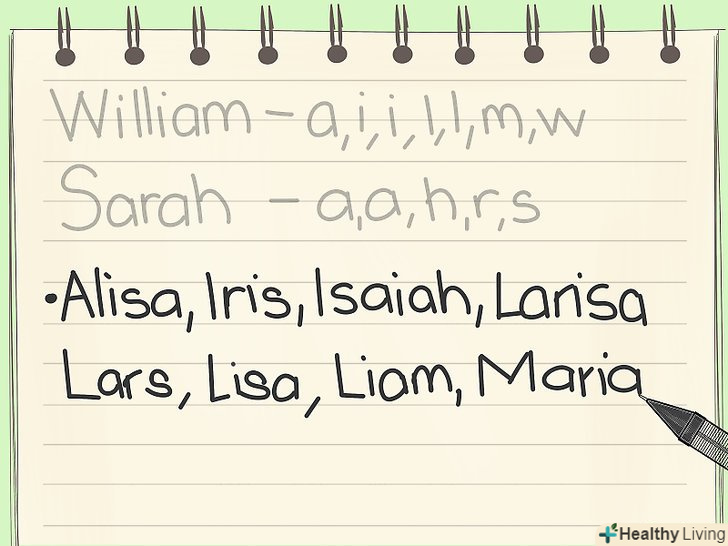 William - a, i, i, l, l, m, w
Sarah - a, a, h, r, s
• Alisa, Iris, Isaiah, Larisa
Lars, Lisa, Liam, Maria
Healthy Living